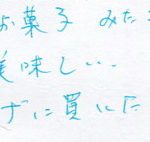 お菓子 みた
美味しい..
げに買いた